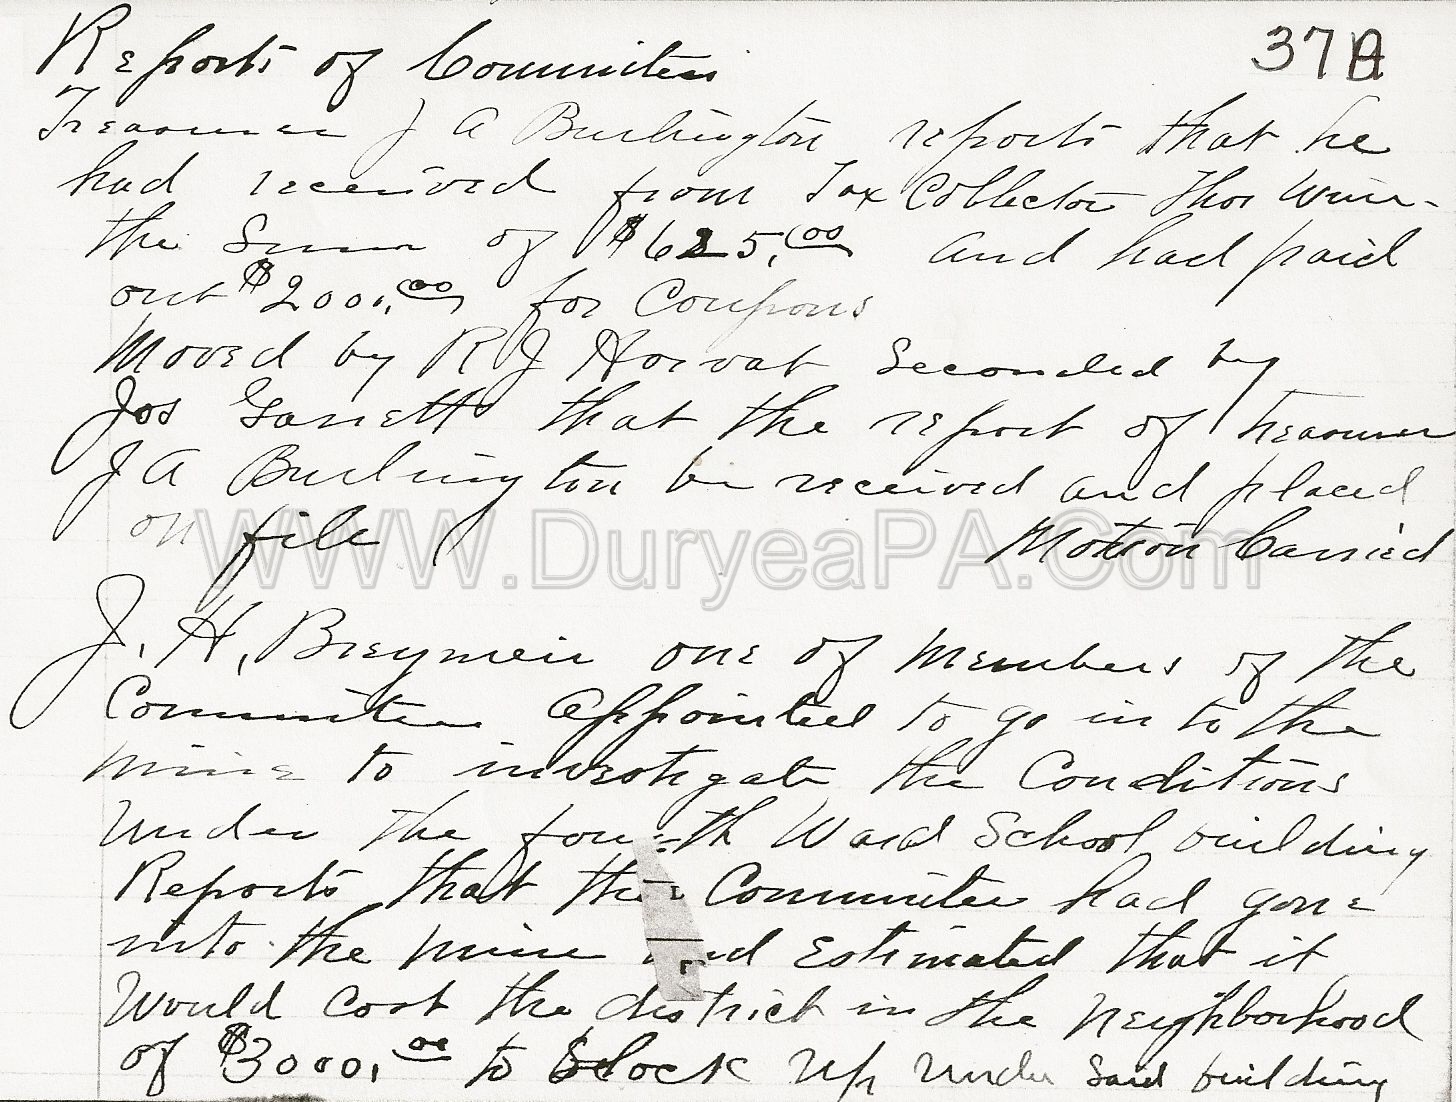 37A
Reports of Committees
Treasurer J A Burlington reports that he
had received from Tax Collector Thos
the Sum of $625.00 and had paid
out $2000.00 for Coupons
Moved by R J Horvat Seconded by
Jos Garrett that the report of Treasurer
J A Burlington be received and placed
on file Motion Carried
WWW.DuryeaPA.Com
J. H. Breymeir one of members of the
Committee appointed to go in to the
mine to investigate the Conditions
under the fourth Ward School building
Reports that the Committee had gone
into the mine and Estimated that it
Would Cost the district in the neighborhood
of $3000.00 to block up under said building